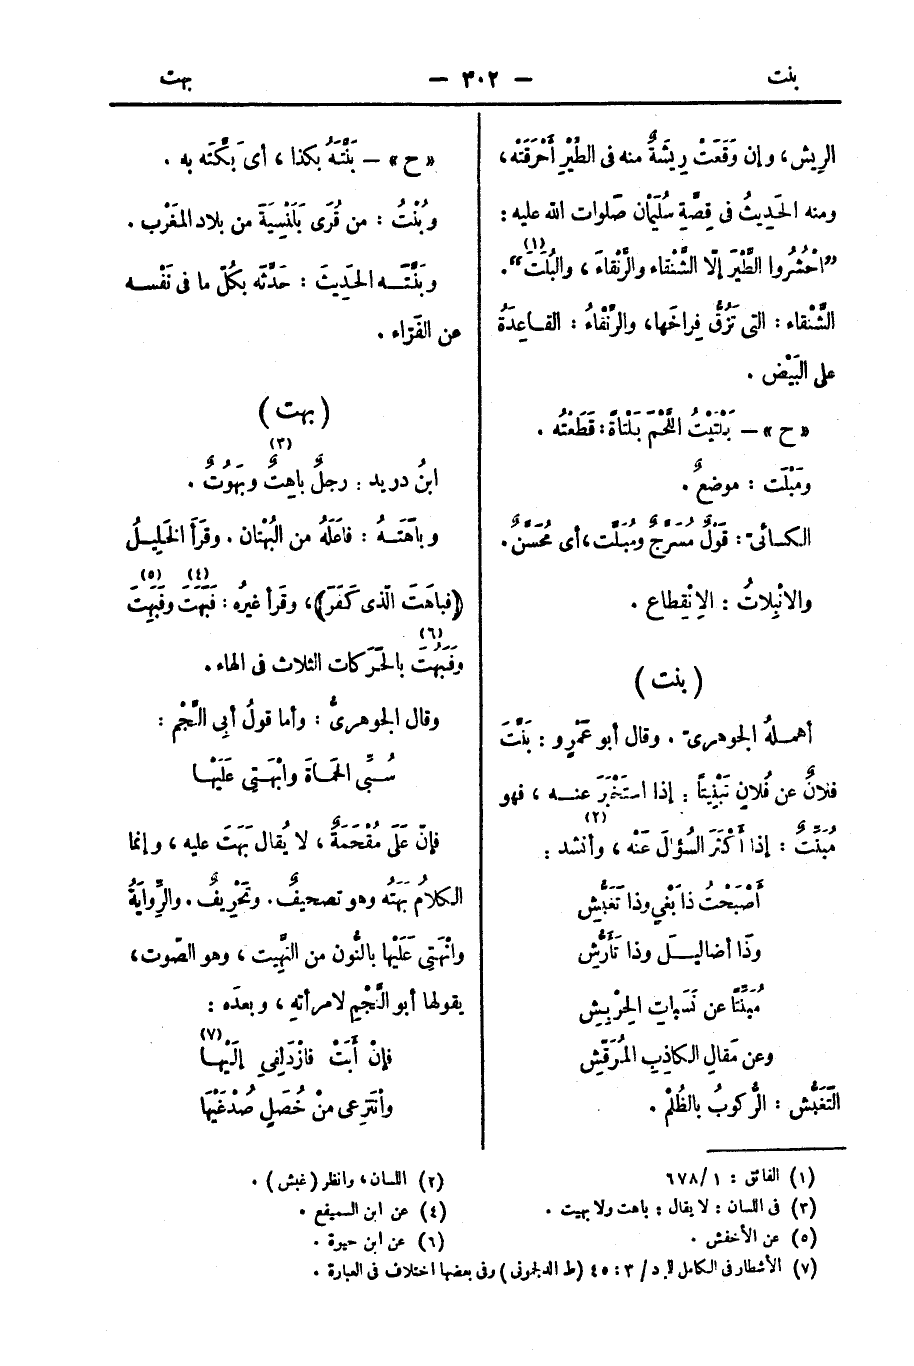 بنت — ٣٠٢ — بهت
الرِيش، وإن وَقَعَتْ رِيشَةٌ منه فى الطَّيْرِ أَحْرَقَتْه،
ومنه الحَدِيثُ فى قِصَّةِ سُلَيْمانَ صَلَوات الله عليه :
”احْشُرُوا الطَّيْرَ إلّا الشَّنْقاءَ والرَّنْقاءَ ، والبُلَتَ“(١).
الشَّنْقاء : التى تَزُقُّ فِراخَها، والرَّنْقاءُ : القاعِدَةُ
على البَيْض .
«ح» — بَلْتَيْتُ اللَّحْمَ بَلْتاةً : قَطَعْتُه .
ومَبْلَت : موضعٌ .
الكسائىّ : قَوْلٌ مُسَرَّجٌ ومُبَلَّت، أى مُحَسَّنٌ .
والانْبِلاتُ : الإنْقِطاع .
( بنت )
أهمله الجوهرىّ . وقال أبو عَمْرٍو : بَنَّتَ
فلانٌ عن فُلانٍ تَبْنِيتاً : إذا استَخْبَرَ عنه ، فهو
مُبَنِّتٌ : إذا أَكْثَرَ السُّؤالَ عَنْه ، وأنشد(٢) :
أَصْبَحْتُ ذا بَغْىٍ وذا تَغَبُّشِ
وذَا أضاليلَ وذا تَأَرُّشِ
مُبَنِّتاً عن نَسَباتِ الحِرْبِيشِ
وعن مَقالِ الكاذِبِ المُرَقِّشِ
التَّغَبُّش : الرُّكوبُ بالظُلْم .
«ح» — بَنَّتَهُ بكذا ، أى بَكَّتَه به .
وبُنْتُ : من قُرَى بَلَنْسِيَةَ من بلاد المَغْرب .
وبَنَّتَه الحَدِيثَ : حَدَّثَه بكُلّ ما فى نَفْسه
عن الفَرّاء .
( بهت )
ابنُ دريد : رجلٌ باهِتٌ(٣) وبَهُوتٌ .
وباهَتَهُ : فاعَلَهُ من البُهْتان . وقَرَأَ الخَلِيلُ
(فباهَتَ الَّذى كَفَرَ) ، وقَرأَ غيرُه : فَبَهَتَ(٤) وفَبَهِتَ(٥)
وفَبَهُتَ(٦) بالحَرَكات الثلاث فى الهاء .
وقال الجوهرىُّ : وأما قولُ أبى النَّجْم :
سُبِّى الحَماةَ وابْهَتِى عَلَيْها
فإنّ عَلَى مُقْحَمَةٌ ، لا يُقال بَهَتَ عليه ، وإنما
الكلامُ بَهَتَهُ وهو تصحيفٌ . وتَحْرِيفٌ . والرِّوايَةُ
وانْهَتِى عَلَيْها بالنُّون من النَّهِيت ، وهو الصَّوت ،
يقولها أبو النَّجْمِ لامرأتِهِ ، وبعدَه :
فإنْ أَبَتْ فازْدَلِفِى إلَيْها(٧)
وانْتَزِعى منْ خُصَلِ صُدْغَيْها
(١) الفائق : ١/٦٧٨
(٢) اللسان ، وانظر (غبش) .
(٣) فى اللسان : لا يقال : باهت ولا بهيت .
(٤) عن ابن السميفع .
(٥) عن الأخفش .
(٦) عن ابن حيوة .
(٧) الأشطار فى الكامل ٣ : ٤٥ (ط الدلجمونى) وفى بعضها اختلاف فى العبارة .